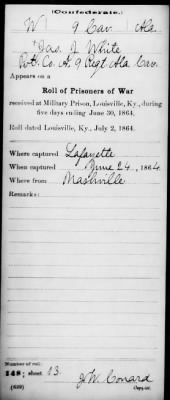 (Confederate.)
W 9 Cav. Ala.
Jas. J. White
Pvt. Co. A, 9 Regt. Ala. Cav.
Appears on a
Roll of Prisoners of War
received at Military Prison, Louisville, Ky., during
five days ending June 30, 1864.
Roll dated Louisville, Ky., July 2, 1864.
Where captured Lafayette
When captured June 24, 1864
Where from Nashville
Remarks:
Number of roll:
148; sheet 13
J. W. Conard
(639) Copyist.